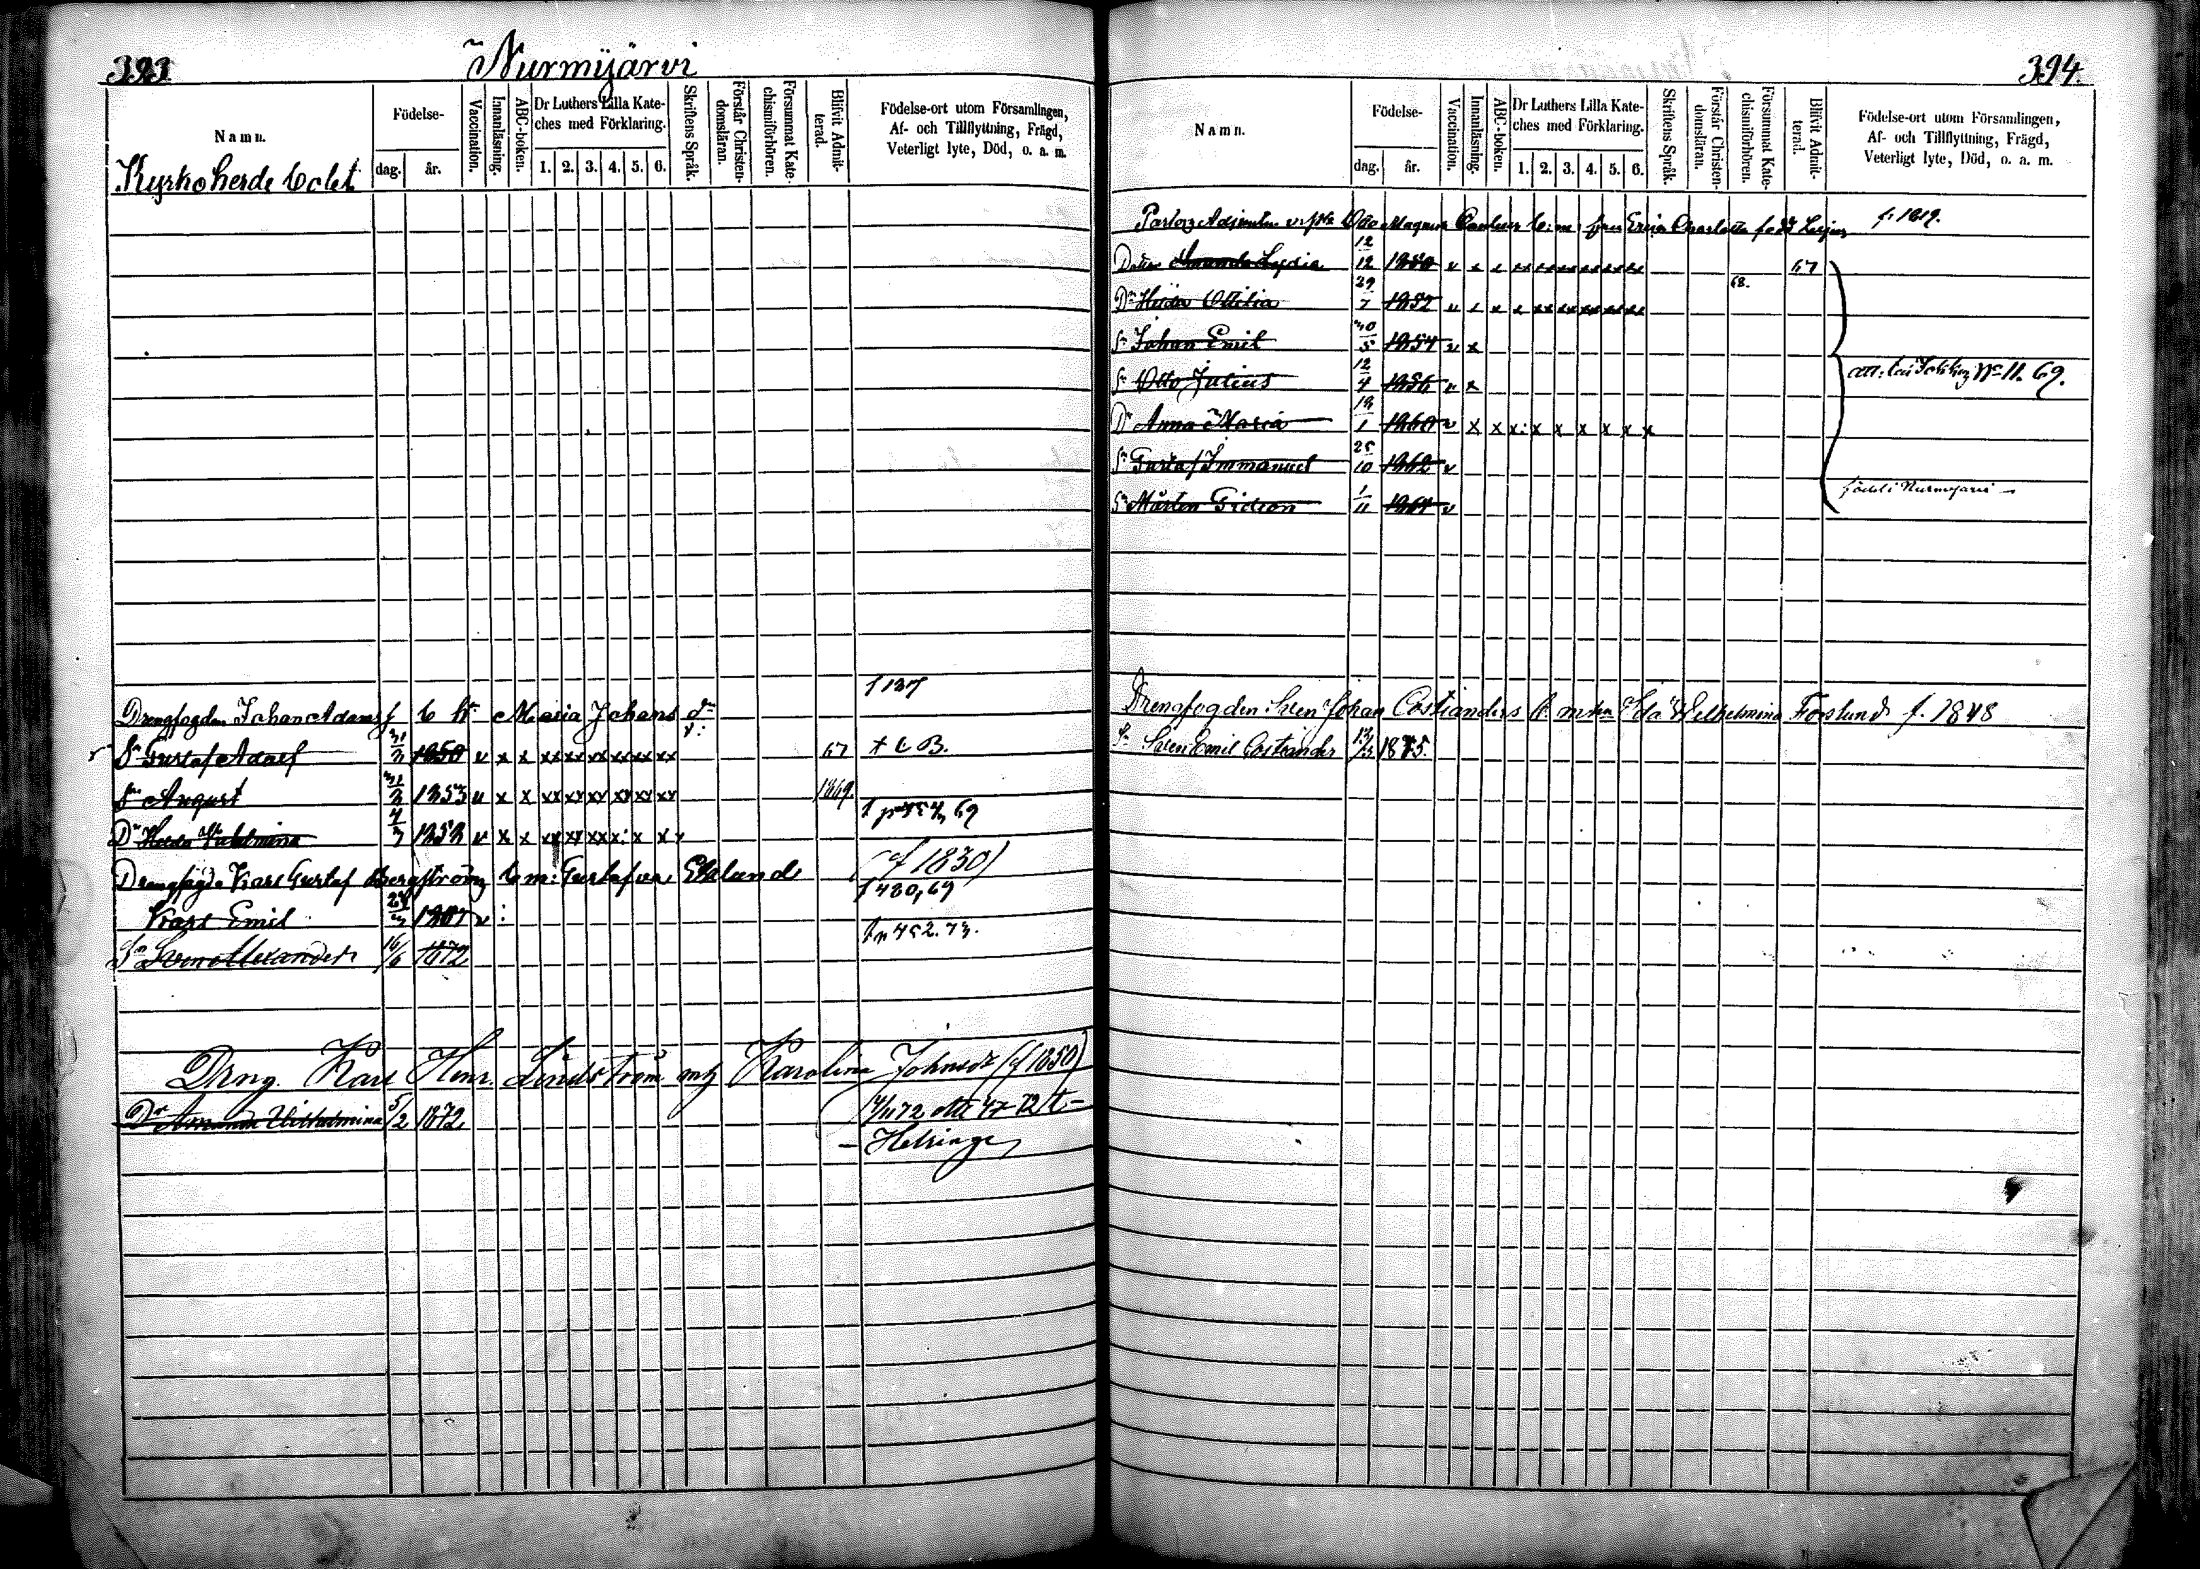 393
Nurmijärvi
Namn.
Födelse-
dag.
år.
Vaccination.
Innanläsning.
ABC-boken.
Dr Luthers Lilla Kate-
ches med Förklaring.
1. 2. 3. 4. 5. 6.
Skriftens Språk.
Förstår Christen-
domsläran.
Försummat Kate-
chismiförhören.
Blifvit Admit-
terad.
Födelse-ort utom Församlingen,
Af- och Tillflyttning, Frägd,
Veterligt lyte, Död, o. a. m.
Kyrkoherde Bolet
f 137
Drengfogden Johan Adamsf Maria Johans dr
Sn Gustaf Adolf 31/3 1850 v x x xx xx xx xx xx xx 67 + C B.
Sn August 31/3 1853 v x x xx xx xx xx xx xx 1869.
Dr Hilda Vilhelmina 4/3 1858 v x x xx xx xx x: x x x 69
Drengfogde Karl Gustaf Bergström m: Gustafva Eklund (f 1830)
f 480, 69
Karl Emil 24/3 v :
452. 73.
Sn Sven Alexander 16/6 1872
Drng. Karl Henr. Lindström m Karolina Johnsdr (f 1850)
Dr Amanda Vilhelmina 5/2 1872 11/11 72 att 47 72 t.
– Helsinge
394.
Namn.
Födelse-
dag.
år.
Vaccination.
Innanläsning.
ABC-boken.
Dr Luthers Lilla Kate-
ches med Förklaring.
1. 2. 3. 4. 5. 6.
Skriftens Språk.
Förstår Christen-
domsläran.
Försummat Kate-
chismiförhören.
Blifvit Admit-
terad.
Födelse-ort utom Församlingen,
Af- och Tillflyttning, Frägd,
Veterligt lyte, Död, o. a. m.
Pastors Adjunten Otto Magnus Erica Charlotta född f. 1819.
Dotter Amanda Lydia 12/12 1850 v x x xx xx xx xx xx xx 67
Dr Hilda Ottilia 29/7 1852 v x x x xx xx xx xx xx 68.
Sn Johan Emil 30/5 1854 v x
Sn Otto Julius 12/4 1856 v x No 11. 69.
Dr Anna Maria 18/1 1860 v x x x: x x x x x x
Sn Gustaf Immanuel 25/10 1862 v
Sn Mårten Gideon 1/11 1864 v född i Nurmijärvi –
Drengfogden Sven Johan Costianders Ida Wilhelmina Forslund f. 1848
Sn Sven Emil Costiander 1875.